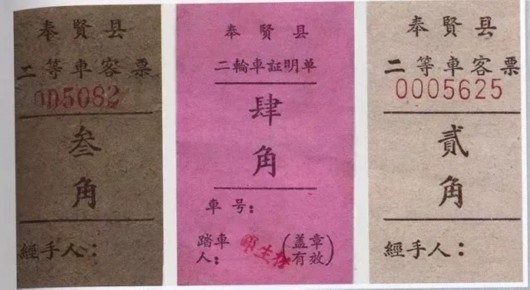 奉賢县
二等車客票
叁角
經手人：
奉賢县
二輪車証明单
肆角
車号：
踏車人：
(盖章有效)
奉賢县
二等車客票
0005625
貳角
經手人：